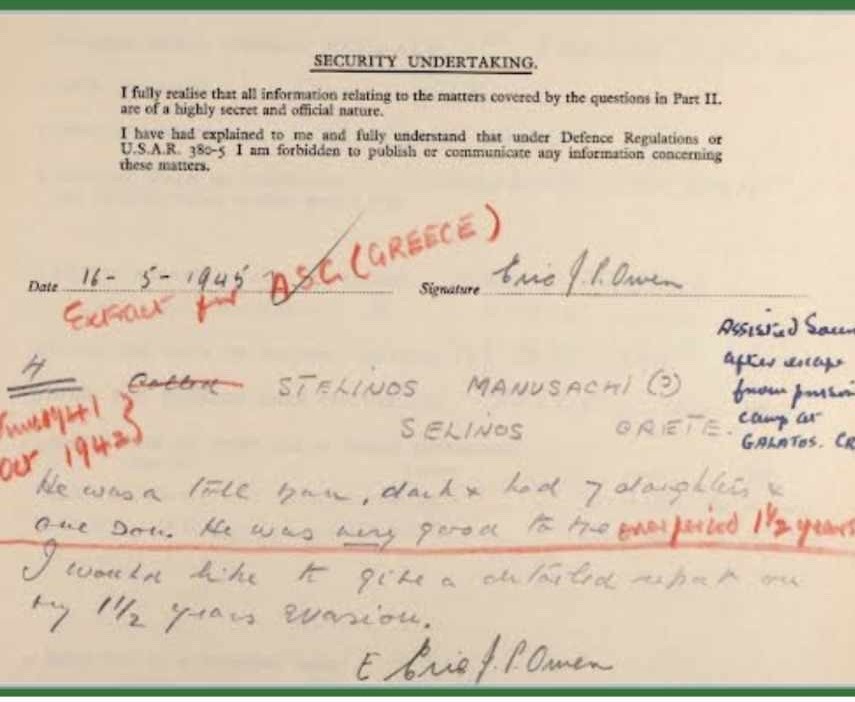 SECURITY UNDERTAKING.
I fully realise that all information relating to the matters covered by the questions in Part II.
are of a highly secret and official nature.
I have had explained to me and fully understand that under Defence Regulations or
U.S.A.R. 380-5 I am forbidden to publish or communicate any information concerning
these matters.
Date 16-5-1945 Signature Eric J. P. Owen
Extract for ASC (GREECE)
Assisted
after escape
from prison
camp at
GALATOS. CR
4
STELINOS MANUSACHI (?)
SELINOS CRETE.
1942
He was a tall man, dark & had 7 daughters &
one son. He was very good to me over period 1 1/2 years
I would like to give a detailed report on
my 1 1/2 years evasion.
E Eric J. P. Owen